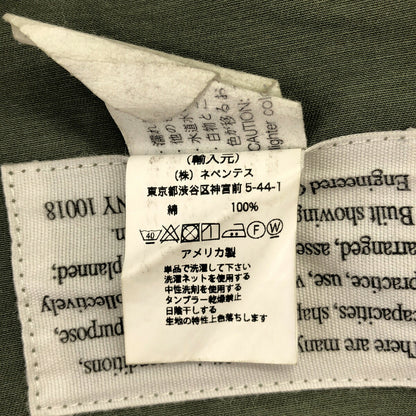 (輸入元)
(株) ネペンテス
東京都渋谷区神宮前 5-44-1
綿 100%
40
F
W
アメリカ製
単品で洗濯して下さい
洗濯ネットを使用する
中性洗剤を使用する
タンブラー乾燥禁止
日陰干しする
生地の特性上色落ちします
・水道水
・白物と
色が移るお
CAUTION:
lighter co
Engineered
NY 10018
Built showing
arranged, asse
planned,
practice, use, v
ollectively
capacities, shap
purpose,
There are many
nditions,